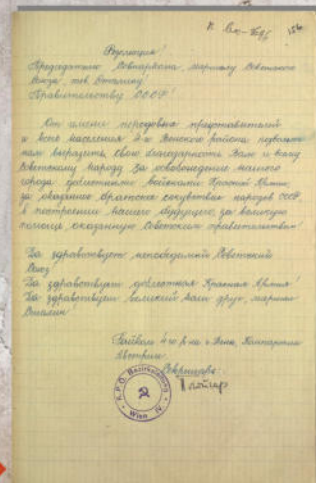 156
Резолюция!
Председателю Совнаркома, маршалу Советского
Союза, тов. Сталину!
Правительству СССР!
От имени передовых представителей
и всего населения 4-го Венского района позвольте
нам выразить свою благодарность Вам и всему
Советскому народу за освобождение нашего
города доблестными войсками Красной Армии,
за оказанное братское сочувствие народов СССР,
в построении нашего будущего, за великую
помощь, оказанную Советским правительством!
Да здравствует непобедимый Советский
Союз!
Да здравствует доблестная Красная Армия!
Да здравствует великий наш друг, маршал
Сталин!
Райком 4-го р-на г. Вена, Компартии
Австрии.
Секретарь:
K.P.Ö. Bezirksleitung
Wien IV.